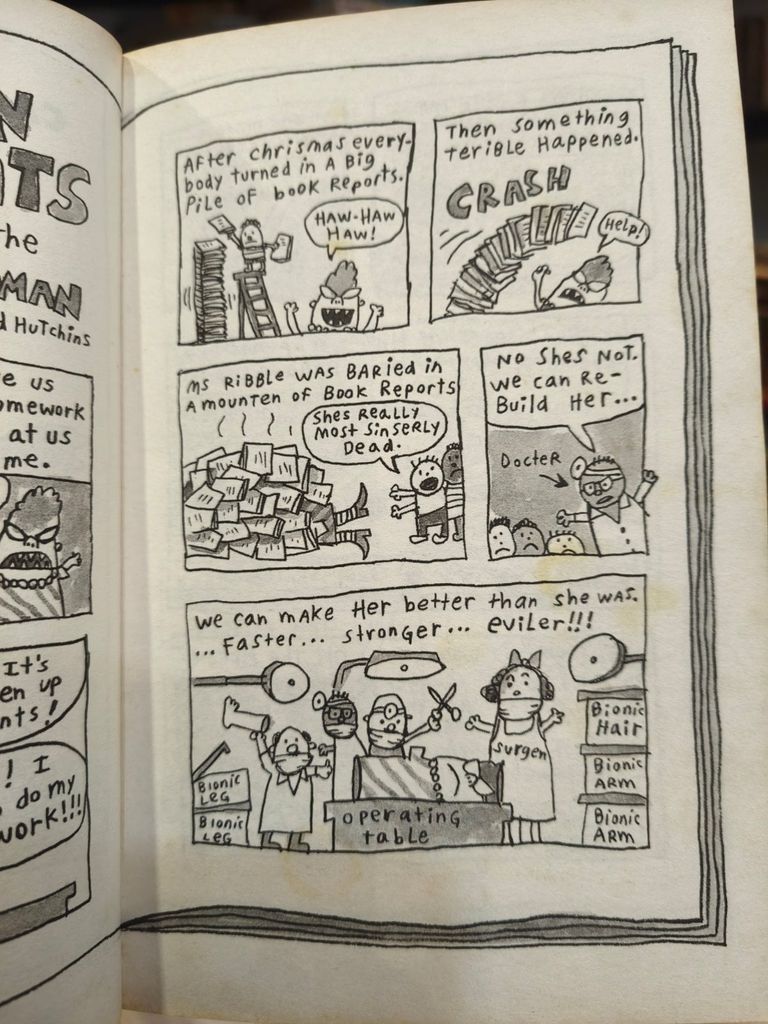 N
TS
he
MAN
d Hutchins
e us
omework
at us
me.
It's
en up
nts!
! I
do my
work!!!
After chrismas every-
body turned in A Big
Pile of book Reports.
HAW-HAW
HAW!
Then something
terible Happened.
CRASH
Help!
Ms Ribble was BARied in
A mounten of Book Reports
Shes Really
Most SinSerly
Dead.
No Shes Not.
We can Re-
Build Her...
Docter
We can make Her better than she was.
...Faster... stronger... eviler!!!
Bionic
Leg
Bionic
Leg
Surgen
operating
table
Bionic
Hair
Bionic
ARM
Bionic
ARM